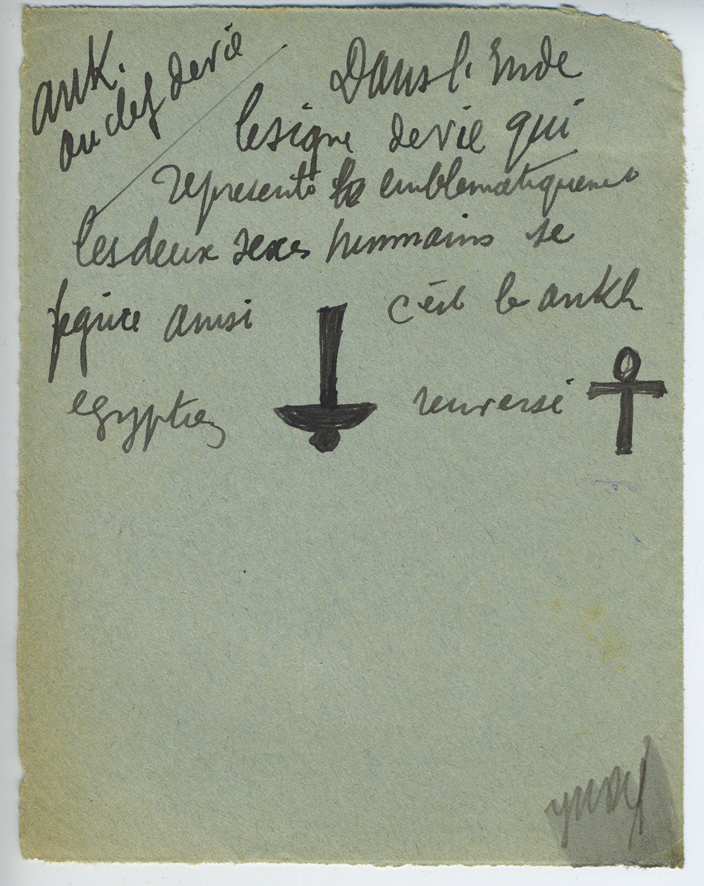 ank.
ou clef de vie
Dans l'Inde
le signe de vie qui
représente emblematiquement
les deux sexes hummains se
figure ainsi c'est le ankh
egyptien renversé